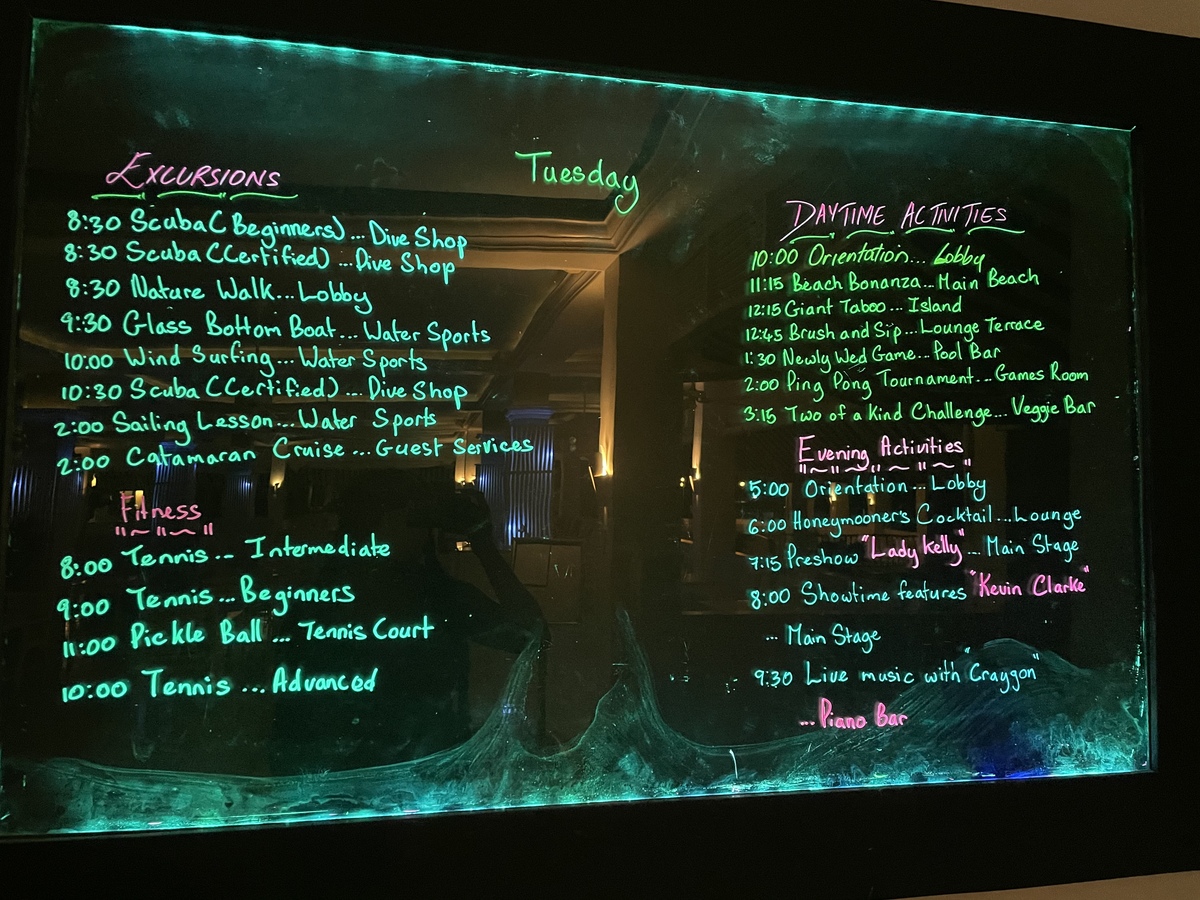 Tuesday
EXCURSIONS
8:30 Scuba (Beginners)...Dive Shop
8:30 Scuba (Certified) ...Dive Shop
8:30 Nature Walk...Lobby
9:30 Glass Bottom Boat...Water Sports
10:00 Wind Surfing...Water Sports
10:30 Scuba (Certified)...Dive Shop
2:00 Sailing Lesson...Water Sports
2:00 Catamaran Cruise...Guest Services
Fitness
8:00 Tennis... Intermediate
9:00 Tennis...Beginners
11:00 Pickle Ball ... Tennis Court
10:00 Tennis ...Advanced
DAYTIME ACTIVITIES
10:00 Orientation... Lobby
11:15 Beach Bonanza...Main Beach
12:15 Giant Taboo... Island
12:45 Brush and Sip...Lounge Terrace
1:30 Newly Wed Game...Pool Bar
2:00 Ping Pong Tournament...Games Room
3:15 Two of a Kind Challenge...Veggie Bar
Evening Activities
5:00 Orientation...Lobby
6:00 Honeymooner's Cocktail...Lounge
7:15 Preshow "Lady Kelly"... Main Stage
8:00 Showtime features "Kevin Clarke"
... Main Stage
9:30 Live music with "Craygon"
...Piano Bar